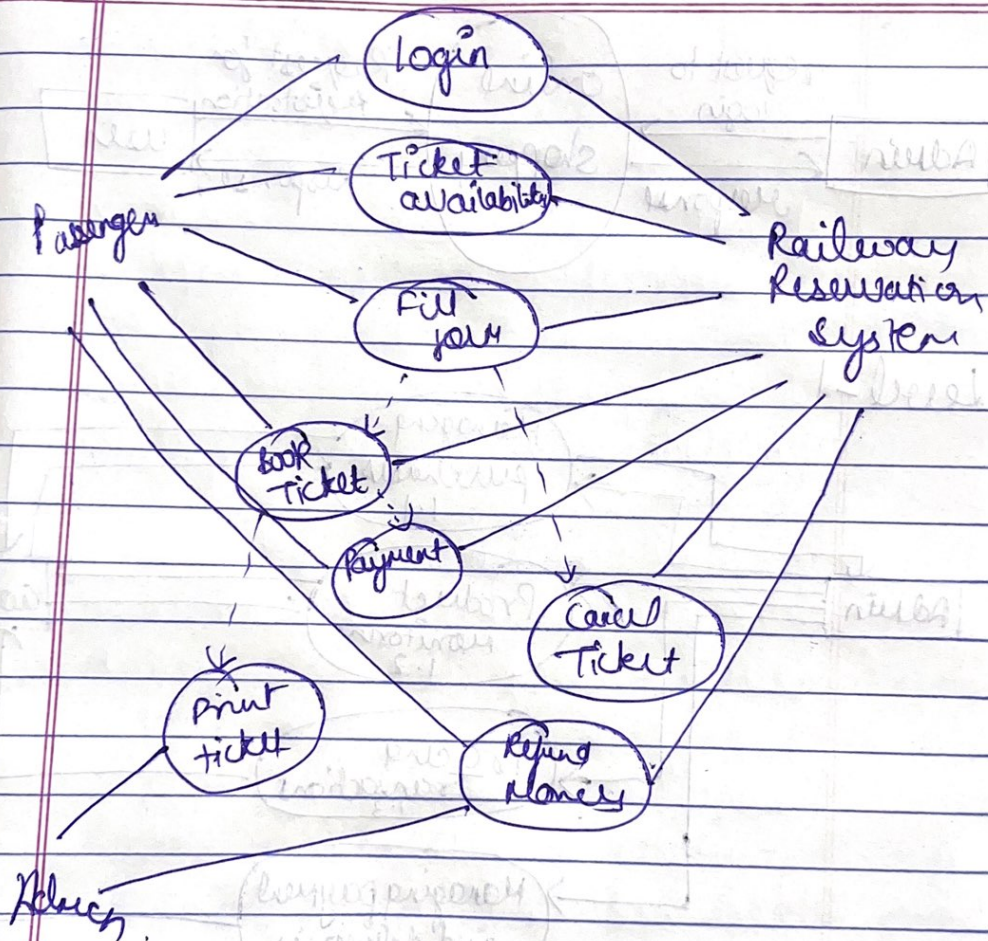 Login
Ticket
availability
Passenger
Railway
Reservation
System
Fill
form
Book
Ticket
Payment
Cancel
Ticket
Print
ticket
Refund
Money